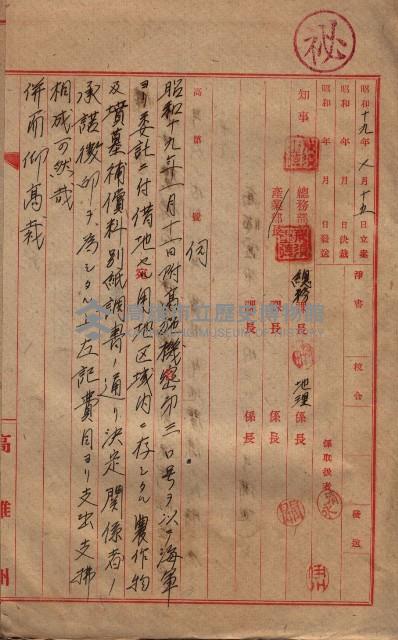 秘
昭和十九年八月十五日立案
昭和 年 月 日決裁
昭和 年 月 日發送
淨書
校合
發送
知事
總務部長
產業部長
總務課長
課長
課長
地理係長
係長
係長
係取扱者
高 第 號
伺
昭和十九年一月十一日附高施機密第三〇号ヲ以テ海軍
ヨリ委託ニ付借地セル用地区域内ニ存シタル農作物
及墳墓補償料別紙調書ノ通リ決定関係者ノ
承諾徴印ヲ為シタル上左記費目ヨリ支出支拂
相成可然哉
併而仰高裁
高雄州
高雄市立歷史博物館
KAOHSIUNG MUSEUM OF HISTORY